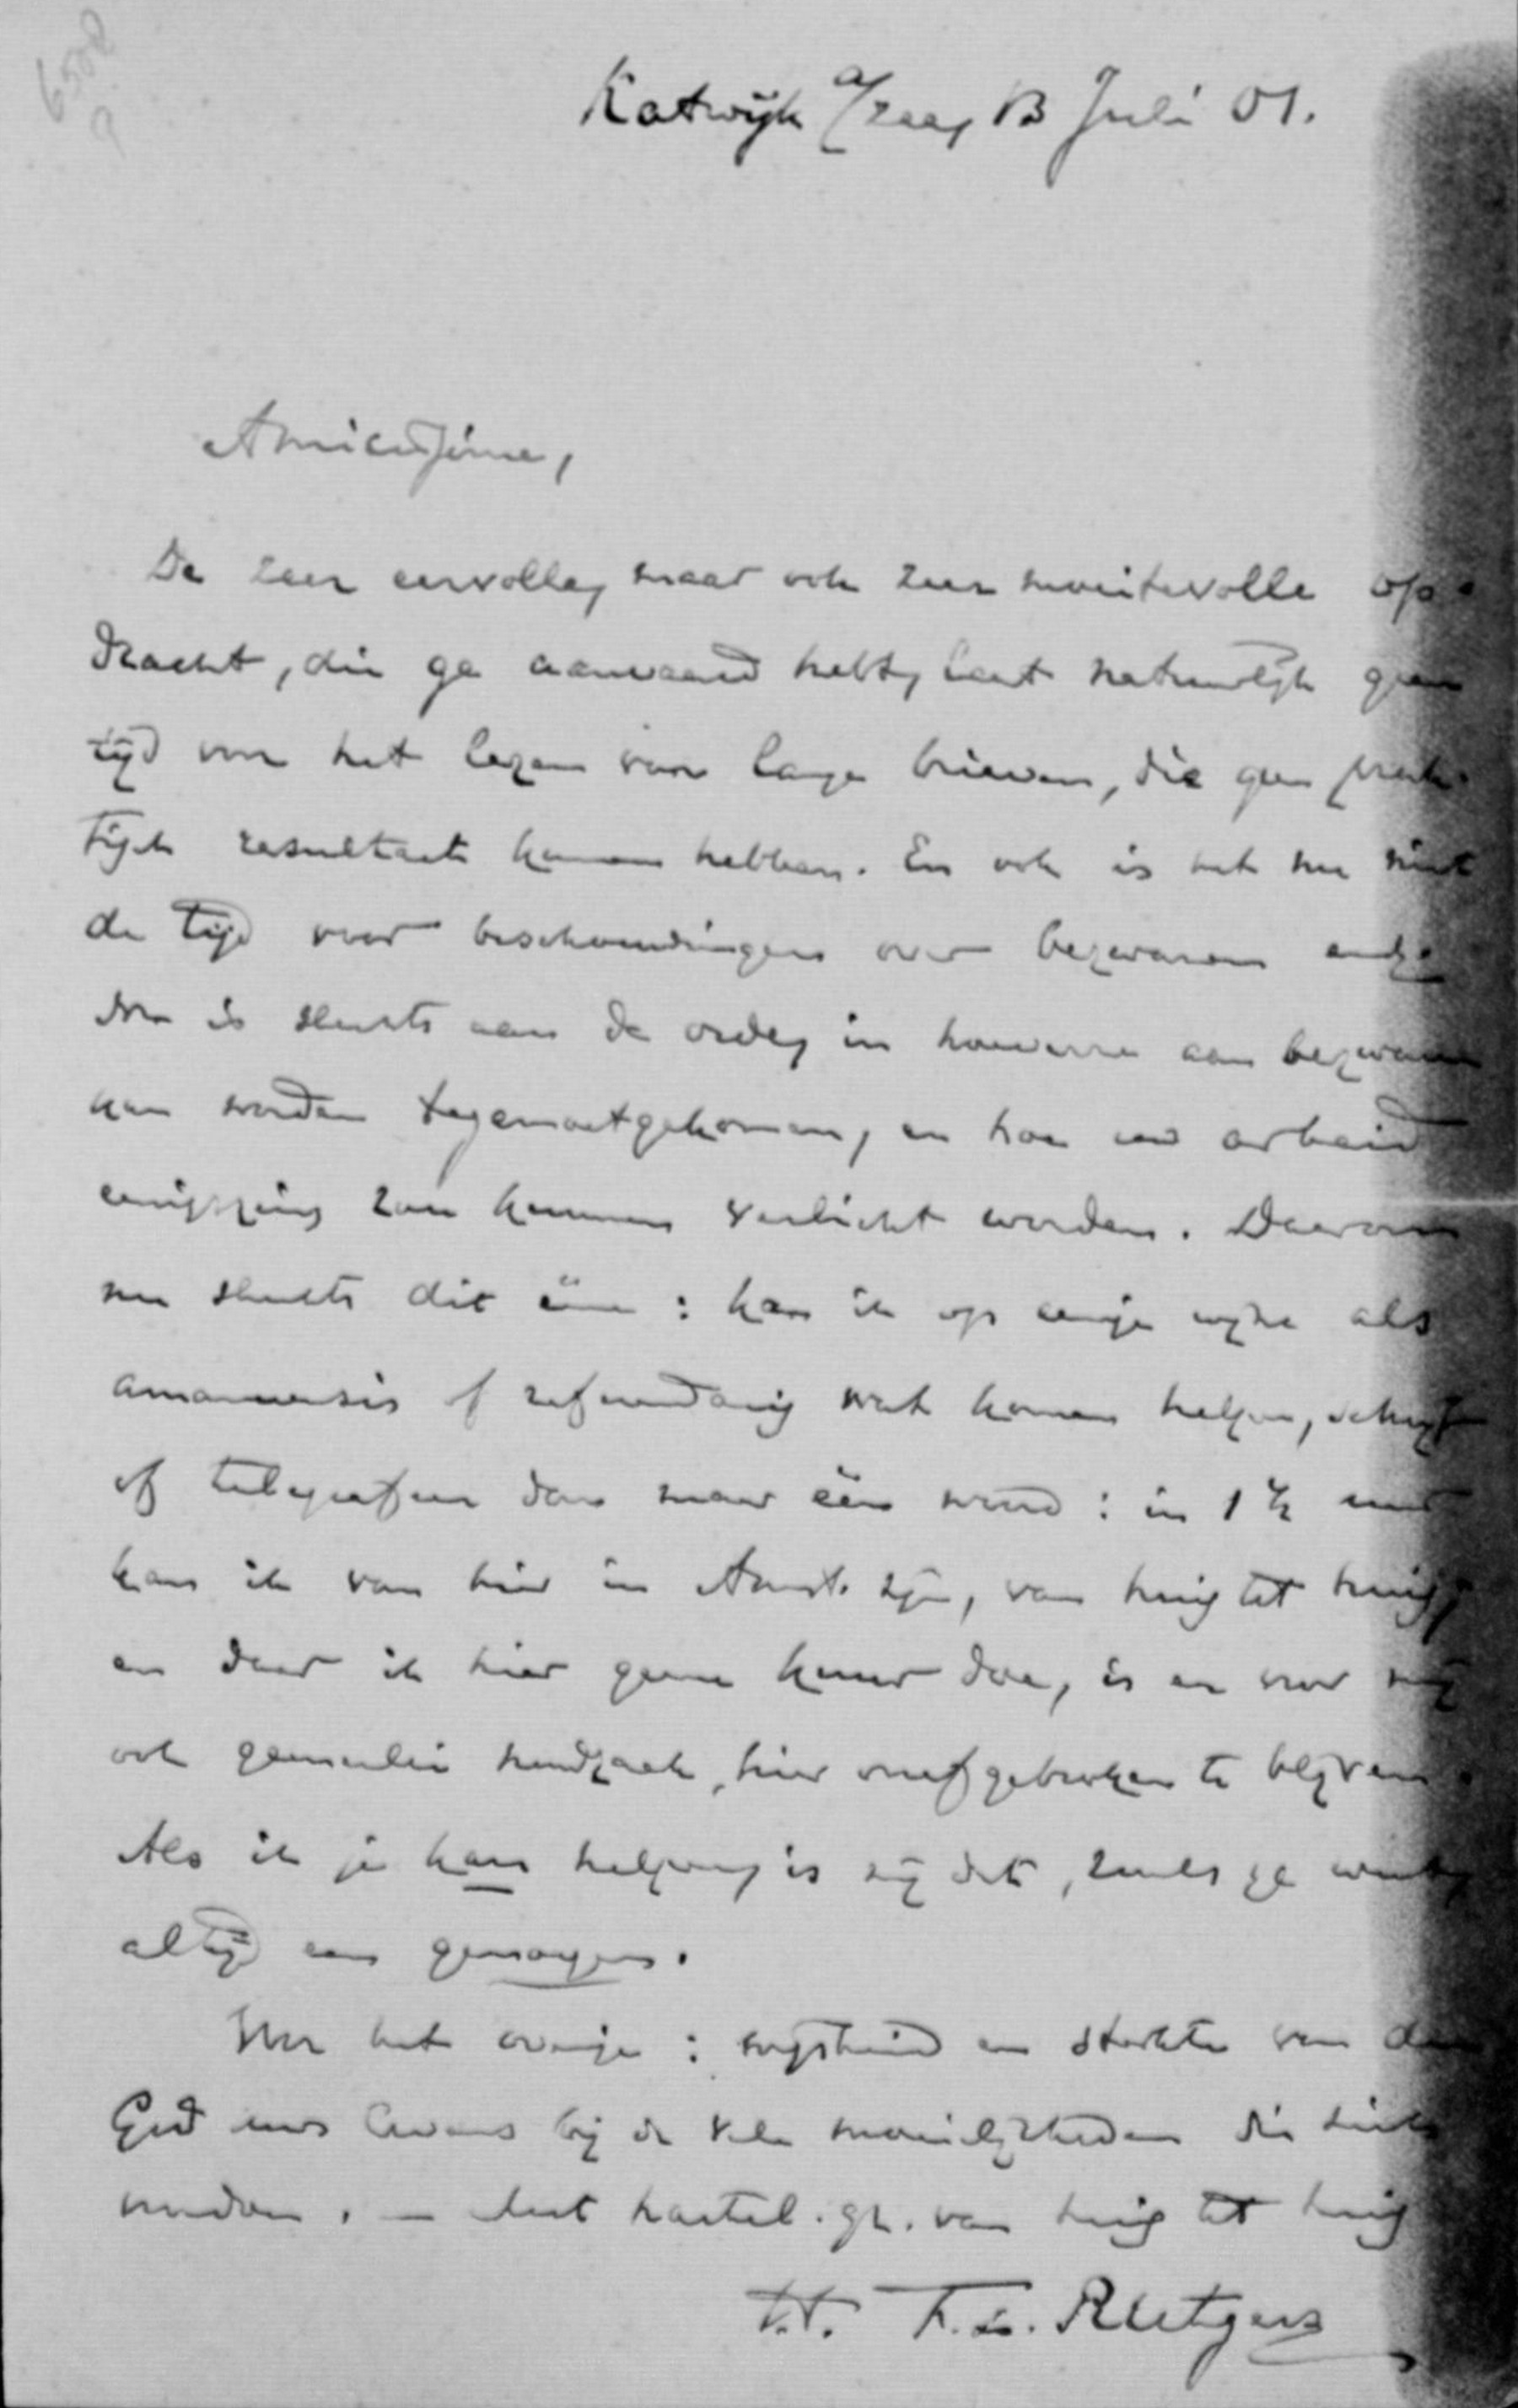 6508
9
Katwijk a/zee, 13 Juli 01.
Amicissime,
De zeer eervolle, maar ook zeer moeitevolle op-
dracht, die ge aanvaard hebt, laat natuurlijk geen
tijd voor het lezen van lange brieven, die geen prak-
tisch resultaat kunnen hebben. En ook is het nu niet
de tijd voor beschouwingen over bezwaren enz.
Nu is slechts aan de orde, in hoeverre aan bezwaren
kan worden tegemoetgekomen, en hoe uw arbeid
eenigszins zou kunnen verlicht worden. Daarom
nu slechts dit ééne: kan ik op eenige wijze als
amanuensis of referendaris wat komen helpen, schrijf
of telegrafeer dan maar één woord: in 1½ uur
kan ik van hier in Amst. zijn, van huis tot huis,
en daar ik hier geene kuur doe, is er voor mij
ook geenerlei noodzaak, hier onafgebroken te blijven.
Als ik je kan helpen, is mij dit, zooals ge weet,
altijd een genoegen.
Voor het overige: wijsheid en sterkte van den
God uws levens bij de vele moeilijkheden die
. — Met hartel. gr. van huis tot huis
t.t. F.L. Rutgers